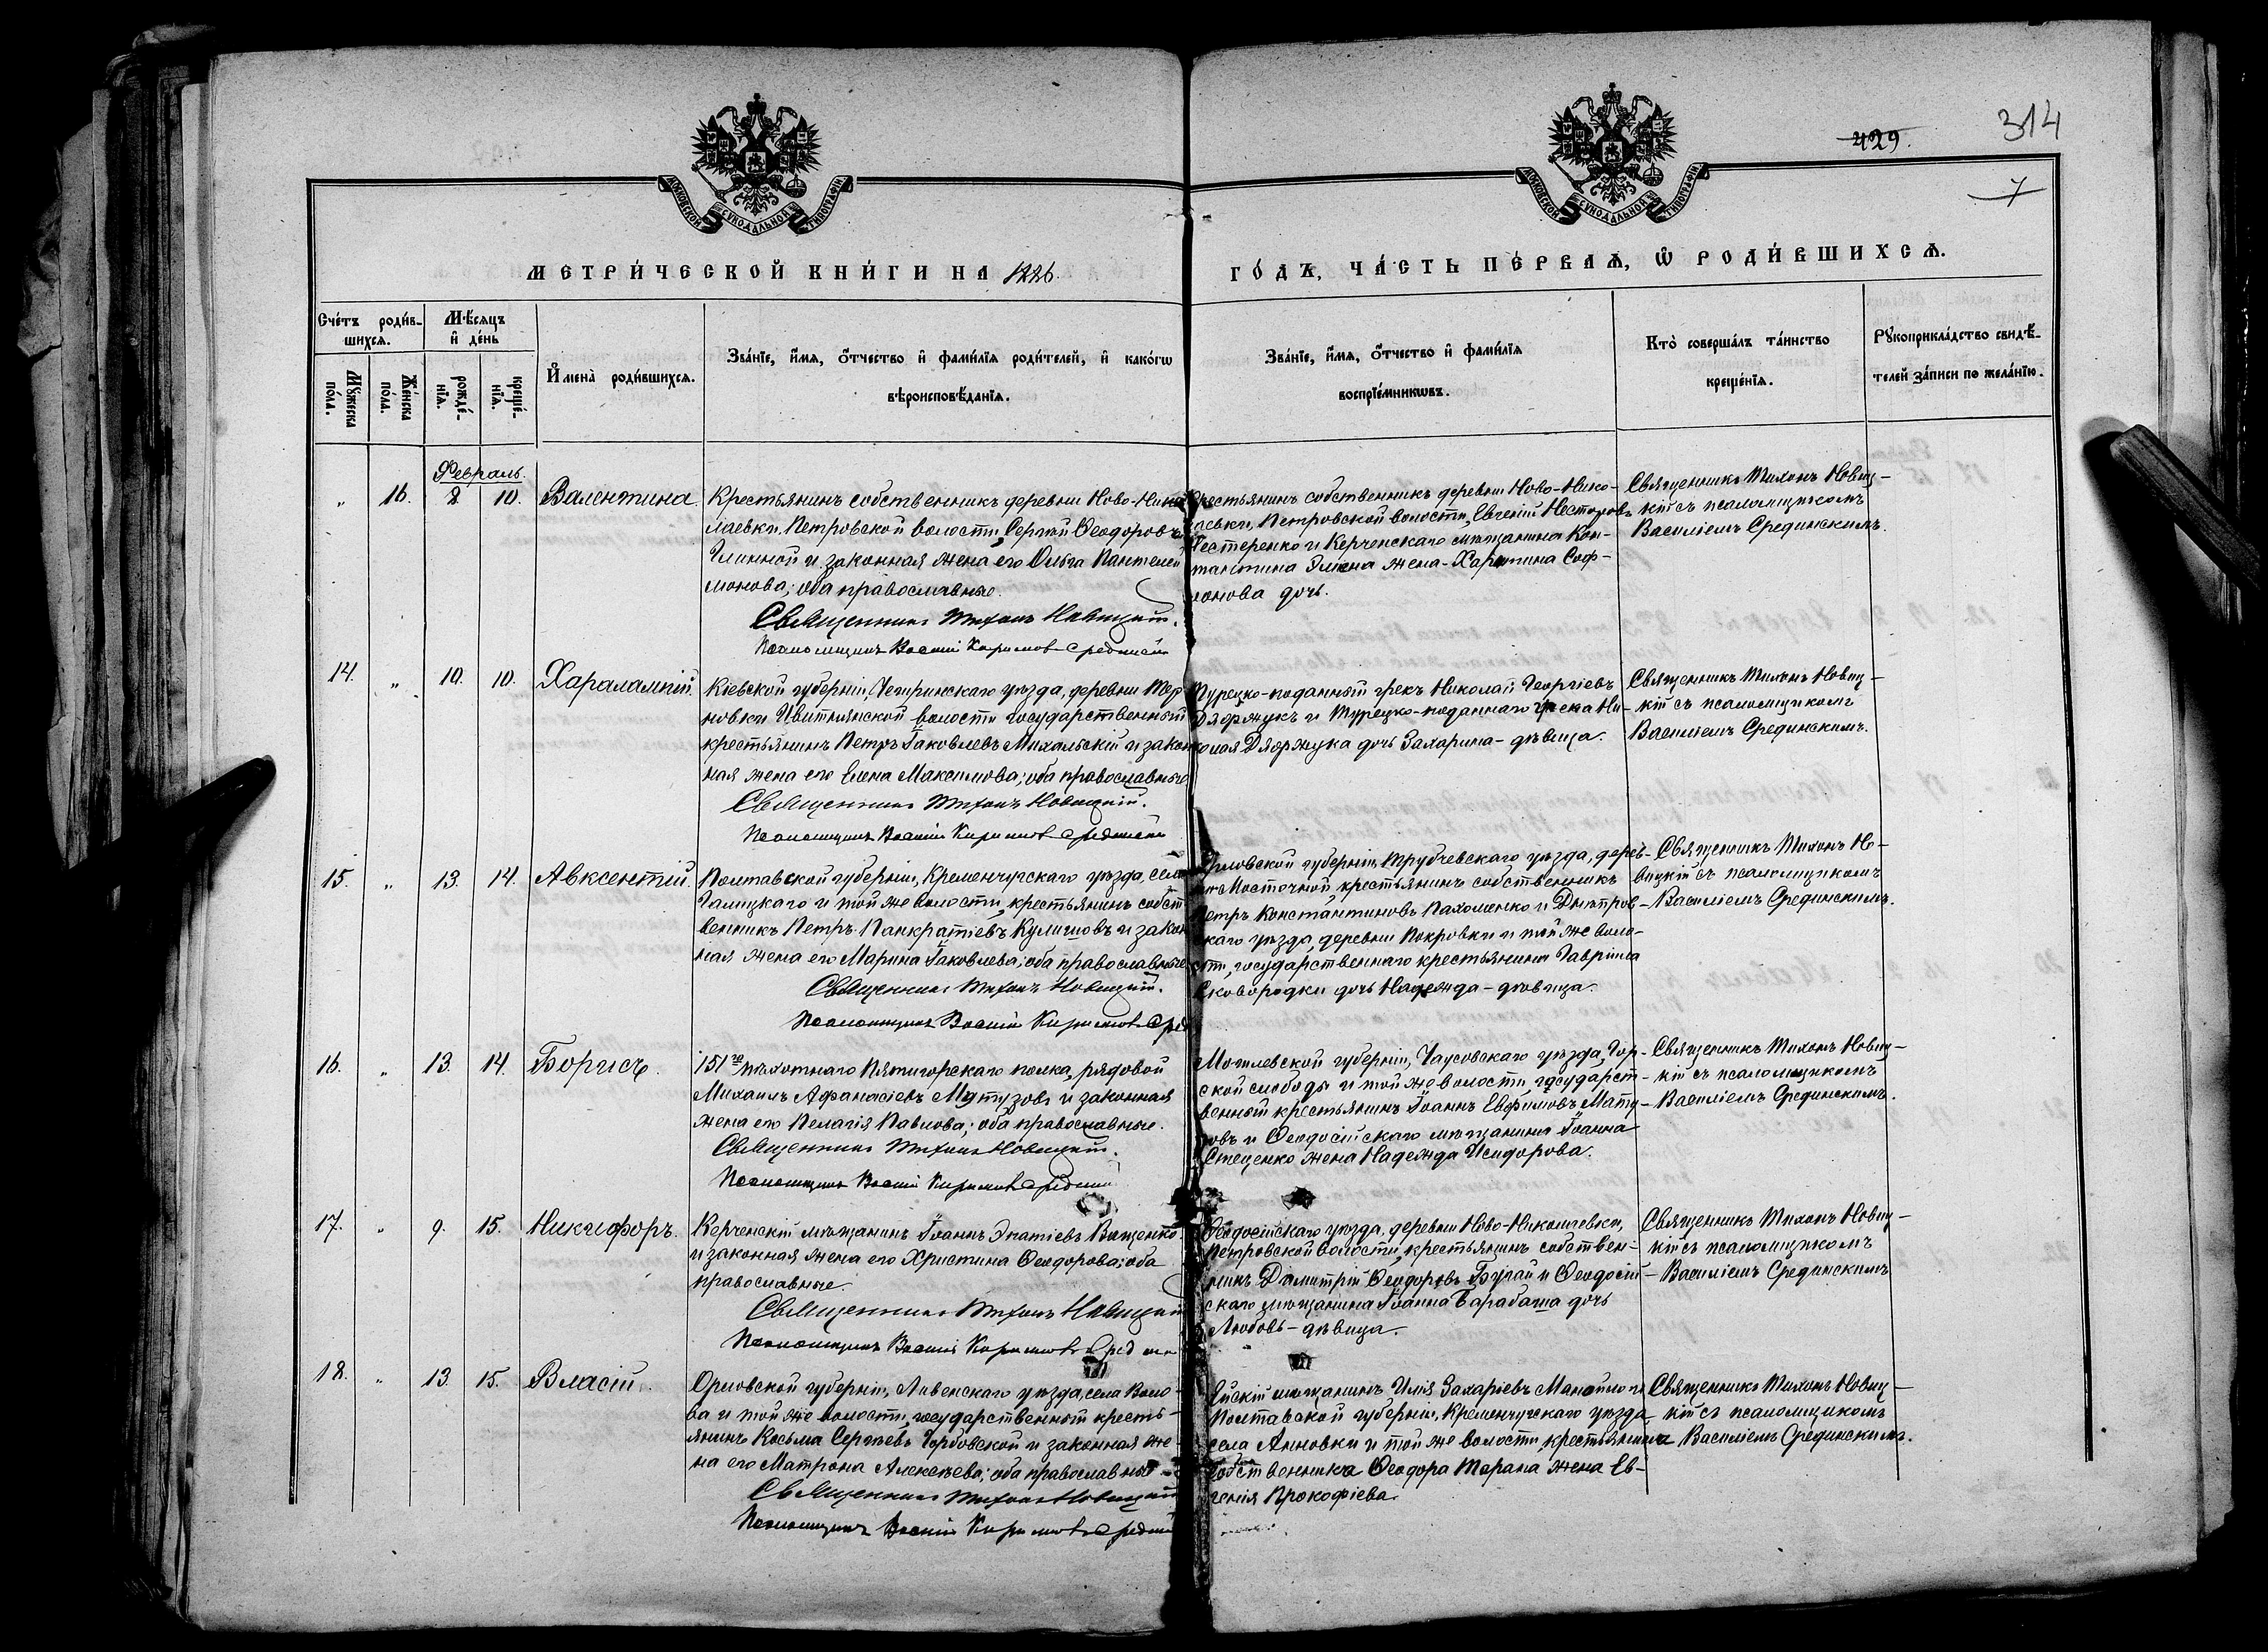 429.
314
7
МОСКОВСКОЙ СѴНОДАЛЬНОЙ ТИПОГРАФІИ
МОСКОВСКОЙ СѴНОДАЛЬНОЙ ТИПОГРАФІИ
МЕТРИ́ЧЕСКОЙ КНИ́ГИ НА 1886
ГО́ДЪ, ЧА́СТЬ ПЕ́РВАѦ, Ѡ РОДИ́ВШИХСѦ.
Сче́тъ роди́в-
шихсѧ.
Мꙋжеска по́ла.
Же́нска по́ла.
Мѣ́сѧцъ и҆ де́нь
рожде́-нїѧ.
креще́-нїѧ.
И҆мена̀ роди́вшихсѧ.
Зва́нїе, и҆́мѧ, ѻ҆́тчество и҆ фами́лїѧ роди́телей, и҆ како́гѡ
вѣроисповѣ́данїѧ.
Зва́нїе, и҆́мѧ, ѻ҆́тчество и҆ фами́лїѧ
воспрїе́мникѡвъ.
Кто̀ соверша́лъ та́инство
креще́нїѧ.
Рꙋкоприкла́дство свидѣ́-
телей за́писи по жела́нїю.
Февраль.
" 16. 8 10. Валентина.
Крестьянинъ собственникъ деревни Ново-Нико
лаевки, Петровской волости, Сергій Ѳеодоровъ
Глинной и законная жена его Ольга Пантелей
монова; оба православные.
Священникъ Тихонъ Новицкій.
Псаломщикъ Василій Кириловъ Срединскій
Крестьянинъ собственникъ деревни Ново-Нико-
лаевки, Петровской волости, Евгеній Несторовъ
Нестеренко и Керченскаго мѣщанина Кон-
стантина жена - Харитина Соф-
ронова дочь.
Священникъ Тихонъ Новиц-
кій съ псаломщикомъ
Василіемъ Срединскимъ.
14. " 10. 10. Харалампій.
Кіевской губерніи, Чигиринскаго уѣзда, деревни Тер
новки Цвитнянской волости государственный
крестьянинъ Петръ Іаковлевъ Михальскій и закон
ная жена его Елена Максимова; оба православные
Священникъ Тихонъ Новицкій.
Псаломщикъ Василій Кириловъ Срединскій
Турецко-поданный грекъ Николай Георгіевъ
и Турецко-поданнаго грека Ни-
колая дочь Захарина - дѣвица.
Священникъ Тихонъ Новиц-
кій съ псаломщикомъ
Василіемъ Срединскимъ.
15. " 13. 14. Авксентій.
Полтавской губерніи, Кременчугскаго уѣзда, села
Галицкаго и той же волости, крестьянинъ собст
венникъ Петръ Панкратіевъ Кулишовъ и закон
ная жена его Марина Іаковлева; оба православные
Священникъ Тихонъ Новицкій.
Псаломщикъ Василій Кириловъ Сред
Орловской губерніи, Трубчевскаго уѣзда, дерев-
ни Мосточной, крестьянинъ собственникъ
Петръ Константиновъ Пахоменко и Днѣпров-
скаго уѣзда, деревни Покровки и той же воло-
сти, государственнаго крестьянина Гавріила
Сковородки дочь Надежда - дѣвица.
Священникъ Тихонъ Но-
вицкій съ псаломщикомъ
Василіемъ Срединскимъ.
16. " 13. 14. Борисъ.
151го пѣхотнаго Пятигорскаго полка, рядовой
Михаилъ Афанасіевъ Мутузовъ и законная
жена его Пелагія Павлова; оба православные.
Священникъ Тихонъ Новицкій.
Псаломщикъ Василій Кириловъ Средин
Могилевской губерніи, Чаусовскаго уѣзда, Гор-
ской слободы и той же волости, государст-
венный крестьянинъ Іоаннъ Евфимовъ
и Ѳеодосійскаго мѣщанина Іоанна
Стеценко жена Надежда Исидорова.
Священникъ Тихонъ Новиц-
кій съ псаломщикомъ
Василіемъ Срединскимъ.
17. " 9. 15. Никифоръ.
Керченскій мѣщанинъ Іоаннъ Игнатіевъ Ващенко
и законная жена его Христина Ѳеодорова; оба
православные.
Священникъ Тихонъ Новицкій
Псаломщикъ Василій Кириловъ Сред
Ѳеодосійскаго уѣзда, деревни Ново-Николаевки,
Петровской волости, крестьянинъ собствен-
никъ Димитрій Ѳеодоровъ Бугай и Ѳеодосій-
скаго мѣщанина Іоанна Барабаша дочь
Любовь - дѣвица.
Священникъ Тихонъ Новиц-
кій съ псаломщикомъ
Василіемъ Срединскимъ
18. " 13. 15. Власій.
Орловской губерніи, Ливенскаго уѣзда, села Воло-
ва и той же волости, государственный кресть-
янинъ Косьма Сергѣевъ Горбовской и законная же-
на его Матрона Алексѣева; оба православные
Священникъ Тихонъ Новицкій
Псаломщикъ Василій Кириловъ Средин
Ейскій мѣщанинъ Илія Захаріевъ Манойло и
Полтавской губерніи, Кременчугскаго уѣзда
села Анновки и той же волости, крестьянина
собственника Ѳеодора Терана жена Ев-
генія Прокофіева.
Священникъ Тихонъ Новиц-
кій съ псаломщикомъ
Василіемъ Срединскимъ.